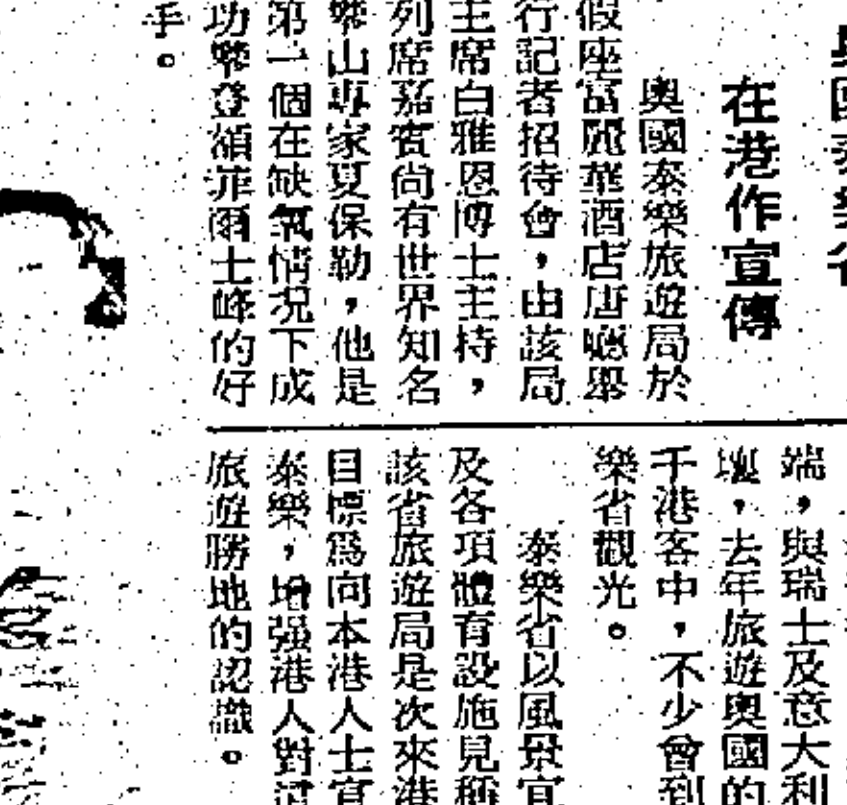 在港作宣傳
奧國泰樂旅遊局於
假座富麗華酒店唐廳舉
行記者招待會，由該局
主席白雅恩博士主持，
列席嘉賓尚有世界知名
攀山專家夏保勒，他是
第一個在缺氧情況下成
功攀登額菲爾士峰的好
手。
端，與瑞士及意大利
壤，去年旅遊奧國的
千港客中，不少曾到
樂省觀光。
泰樂省以風景宜
及各項體育設施見稱
該省旅遊局是次來港
目標爲向本港人士宣
泰樂，增强港人對這
旅遊勝地的認識。